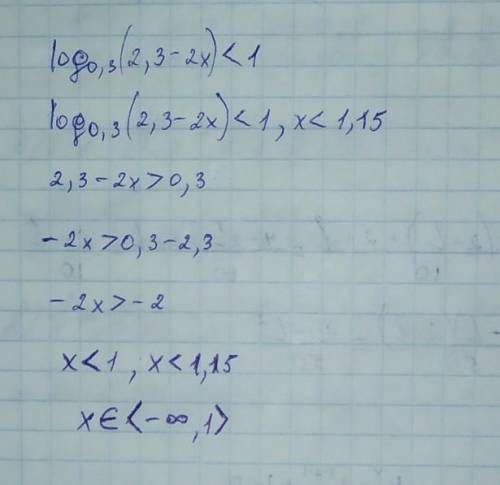 log₀,₃(2,3-2x)<1
log₀,₃(2,3-2x)<1, x<1,15
2,3-2x>0,3
-2x>0,3-2,3
-2x>-2
x<1, x<1,15
x∈⟨-∞,1⟩